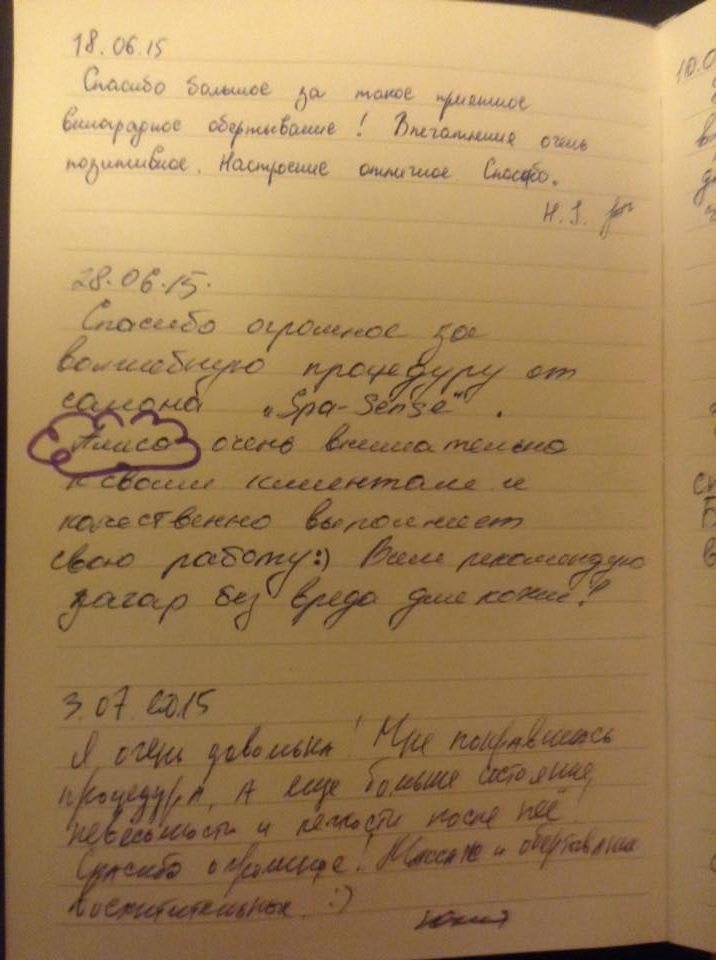 18.06.15
Спасибо большое за такое приятное
виноградное обертывание! Впечатление очень
позитивное. Настроение отличное Спасибо.
Н. S.
28.06.15.
Спасибо огромное за
волшебную процедуру от
салона "Spa-Sense".
Алиса очень внимательна
к своим клиентам и
качественно выполняет
свою работу:) Всем рекомендую
загар без вреда для кожи!
3.07.2015
Я очень довольна! Мне понравилась
процедура, А еще больше состояние
невесомости и легкости после неё!
Спасибо огромное! Массаж и обертывание
восхитительные. :)
10.0